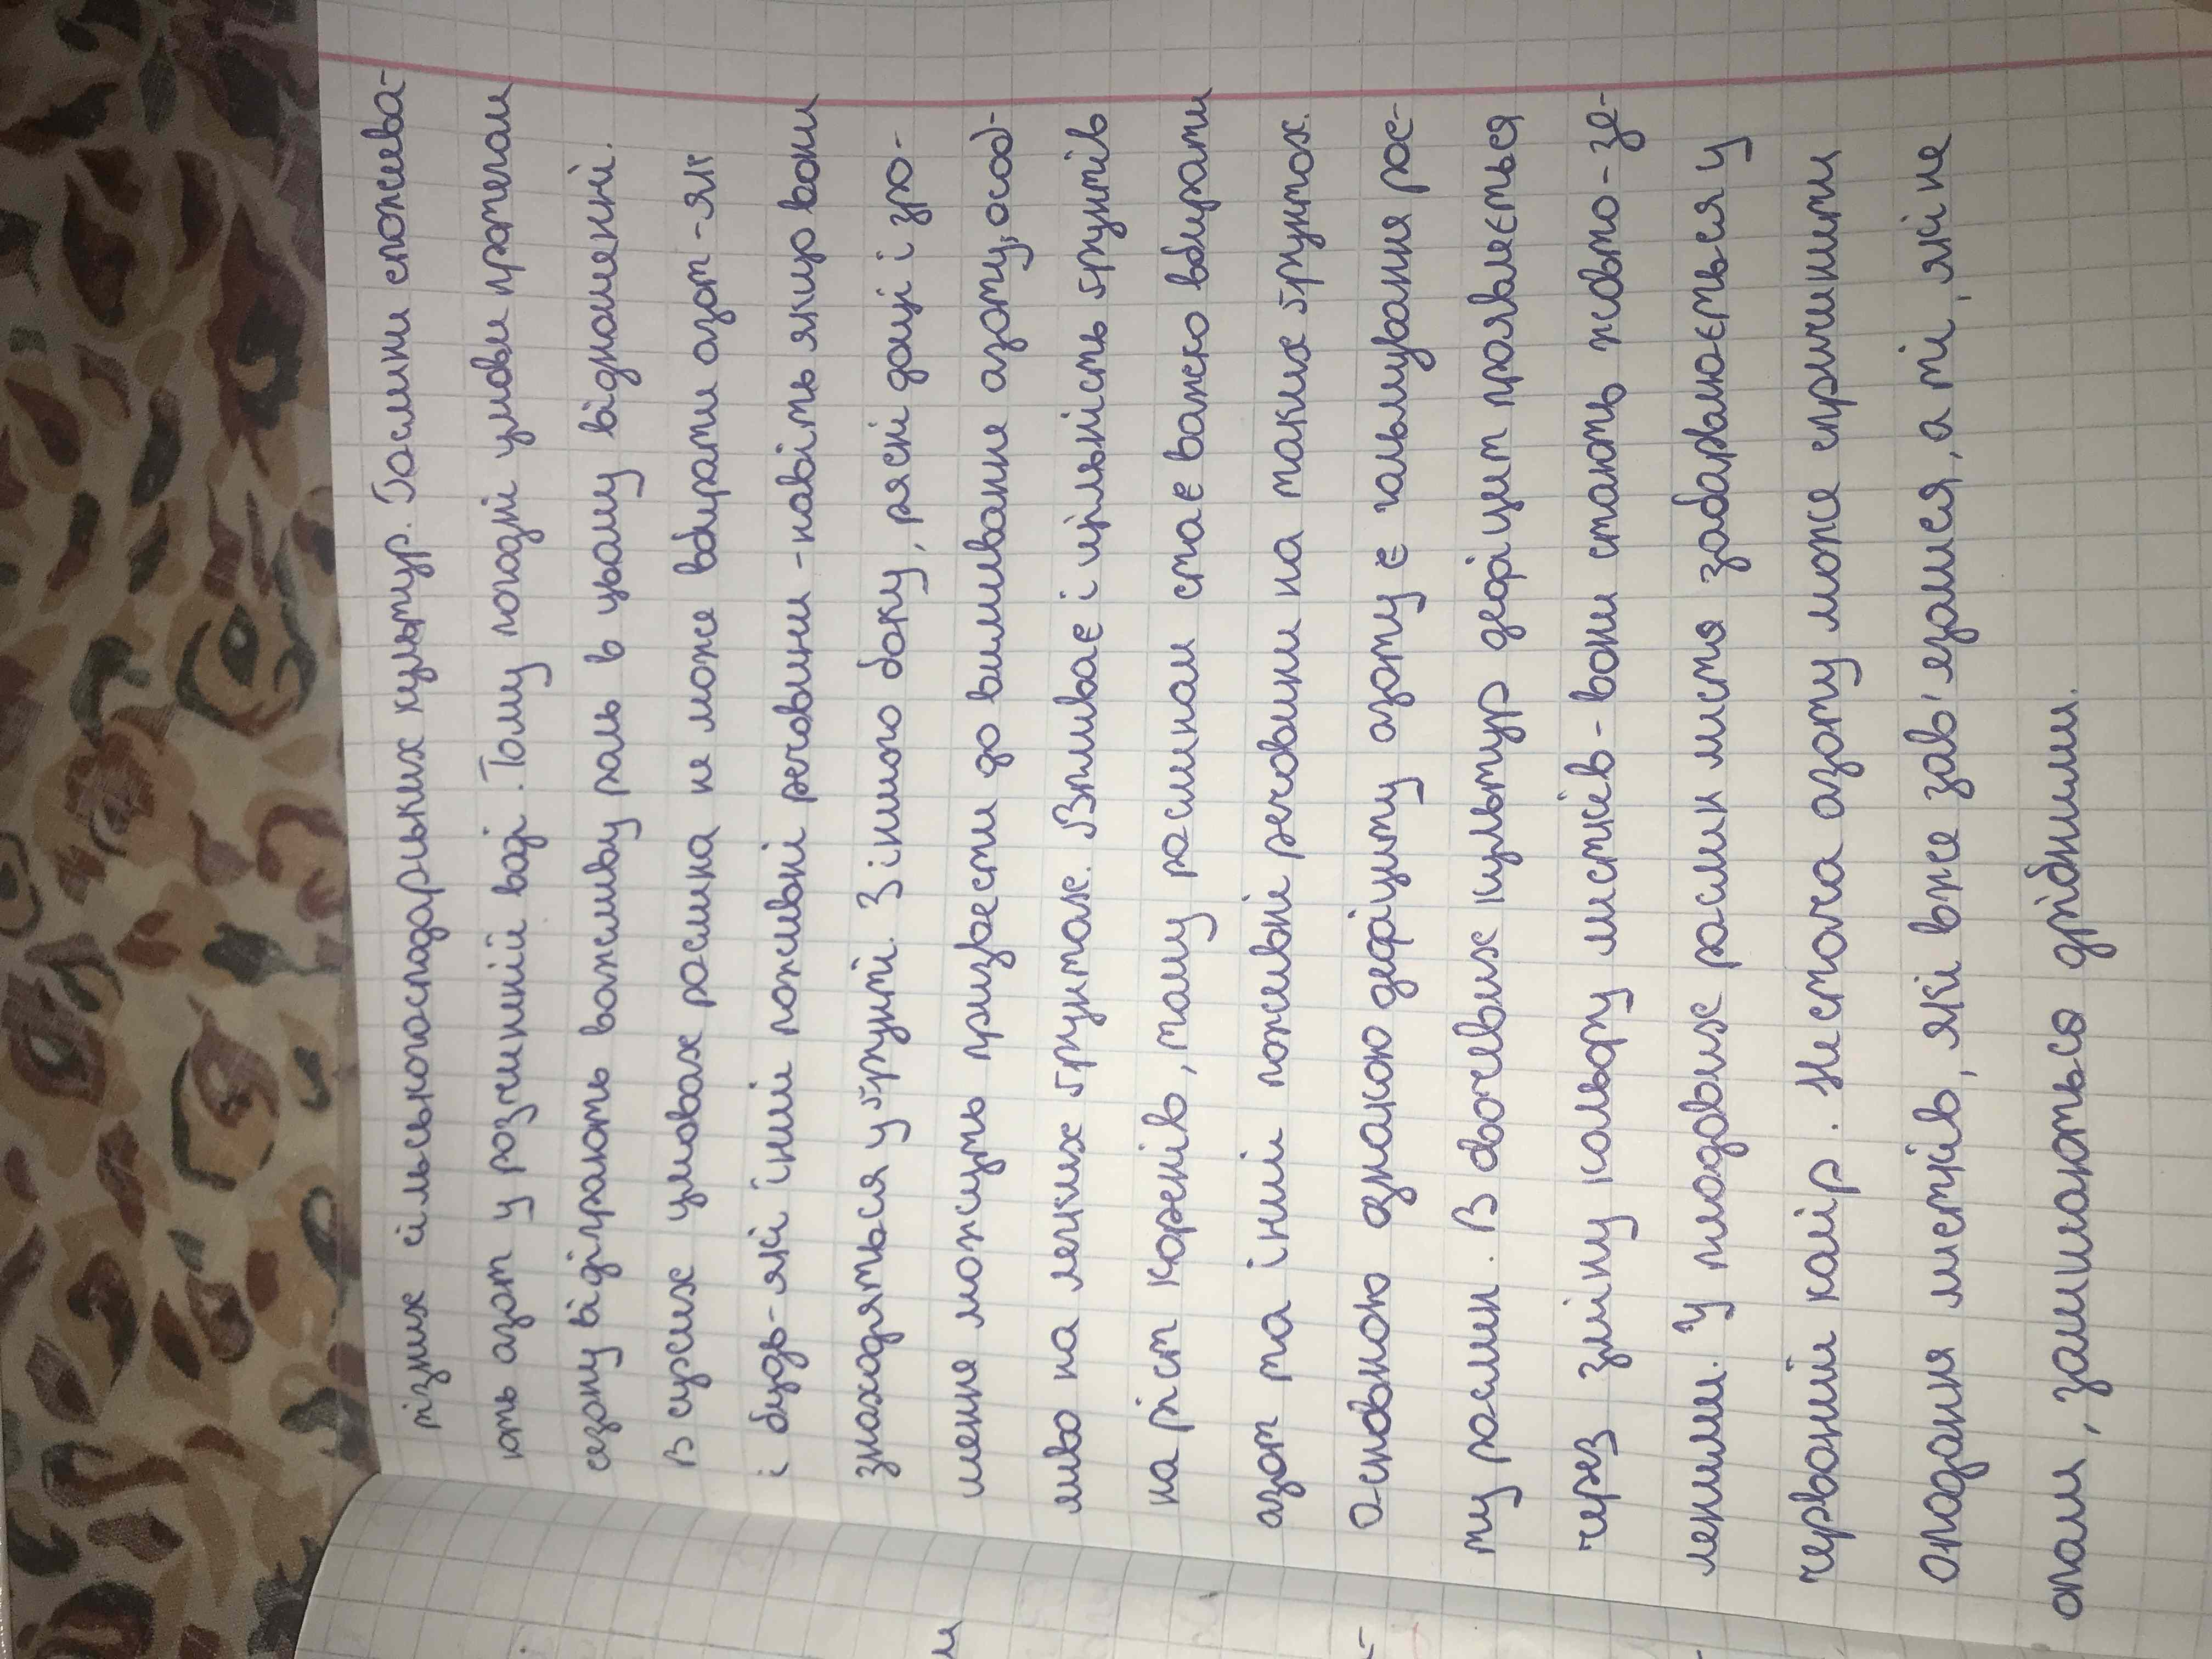 різних сільськогосподарських культур. Рослини спожива-
ють азот у розчинній воді. Тому погодні умови протягом
сезону відіграють важливу роль в цьому відношенні.
В сухих умовах рослина не може вбирати азот-як
і будь-які інші поживні речовини - навіть якщо вони
знаходяться у ґрунті. З іншого боку, рясні дощі і зро-
шення можуть призвести до вимивання азоту, особ-
ливо на легких ґрунтах. Впливає і щільність ґрунтів
на ріст коренів, тому рослинам стає важко вбирати
азот та інші поживні речовини на таких ґрунтах.
Основною ознакою дефіциту азоту є гальмування рос-
ту рослин. В овочевих культур дефіцит проявляється
через зміну кольору листків - вони стають жовто-зе-
леними. У плодових рослин листя забарвлюється у
червоний колір. Нестача азоту може спричинити
опадання листків, які вже зав'язалися, а ті, які не
опали, залишаються дрібними.